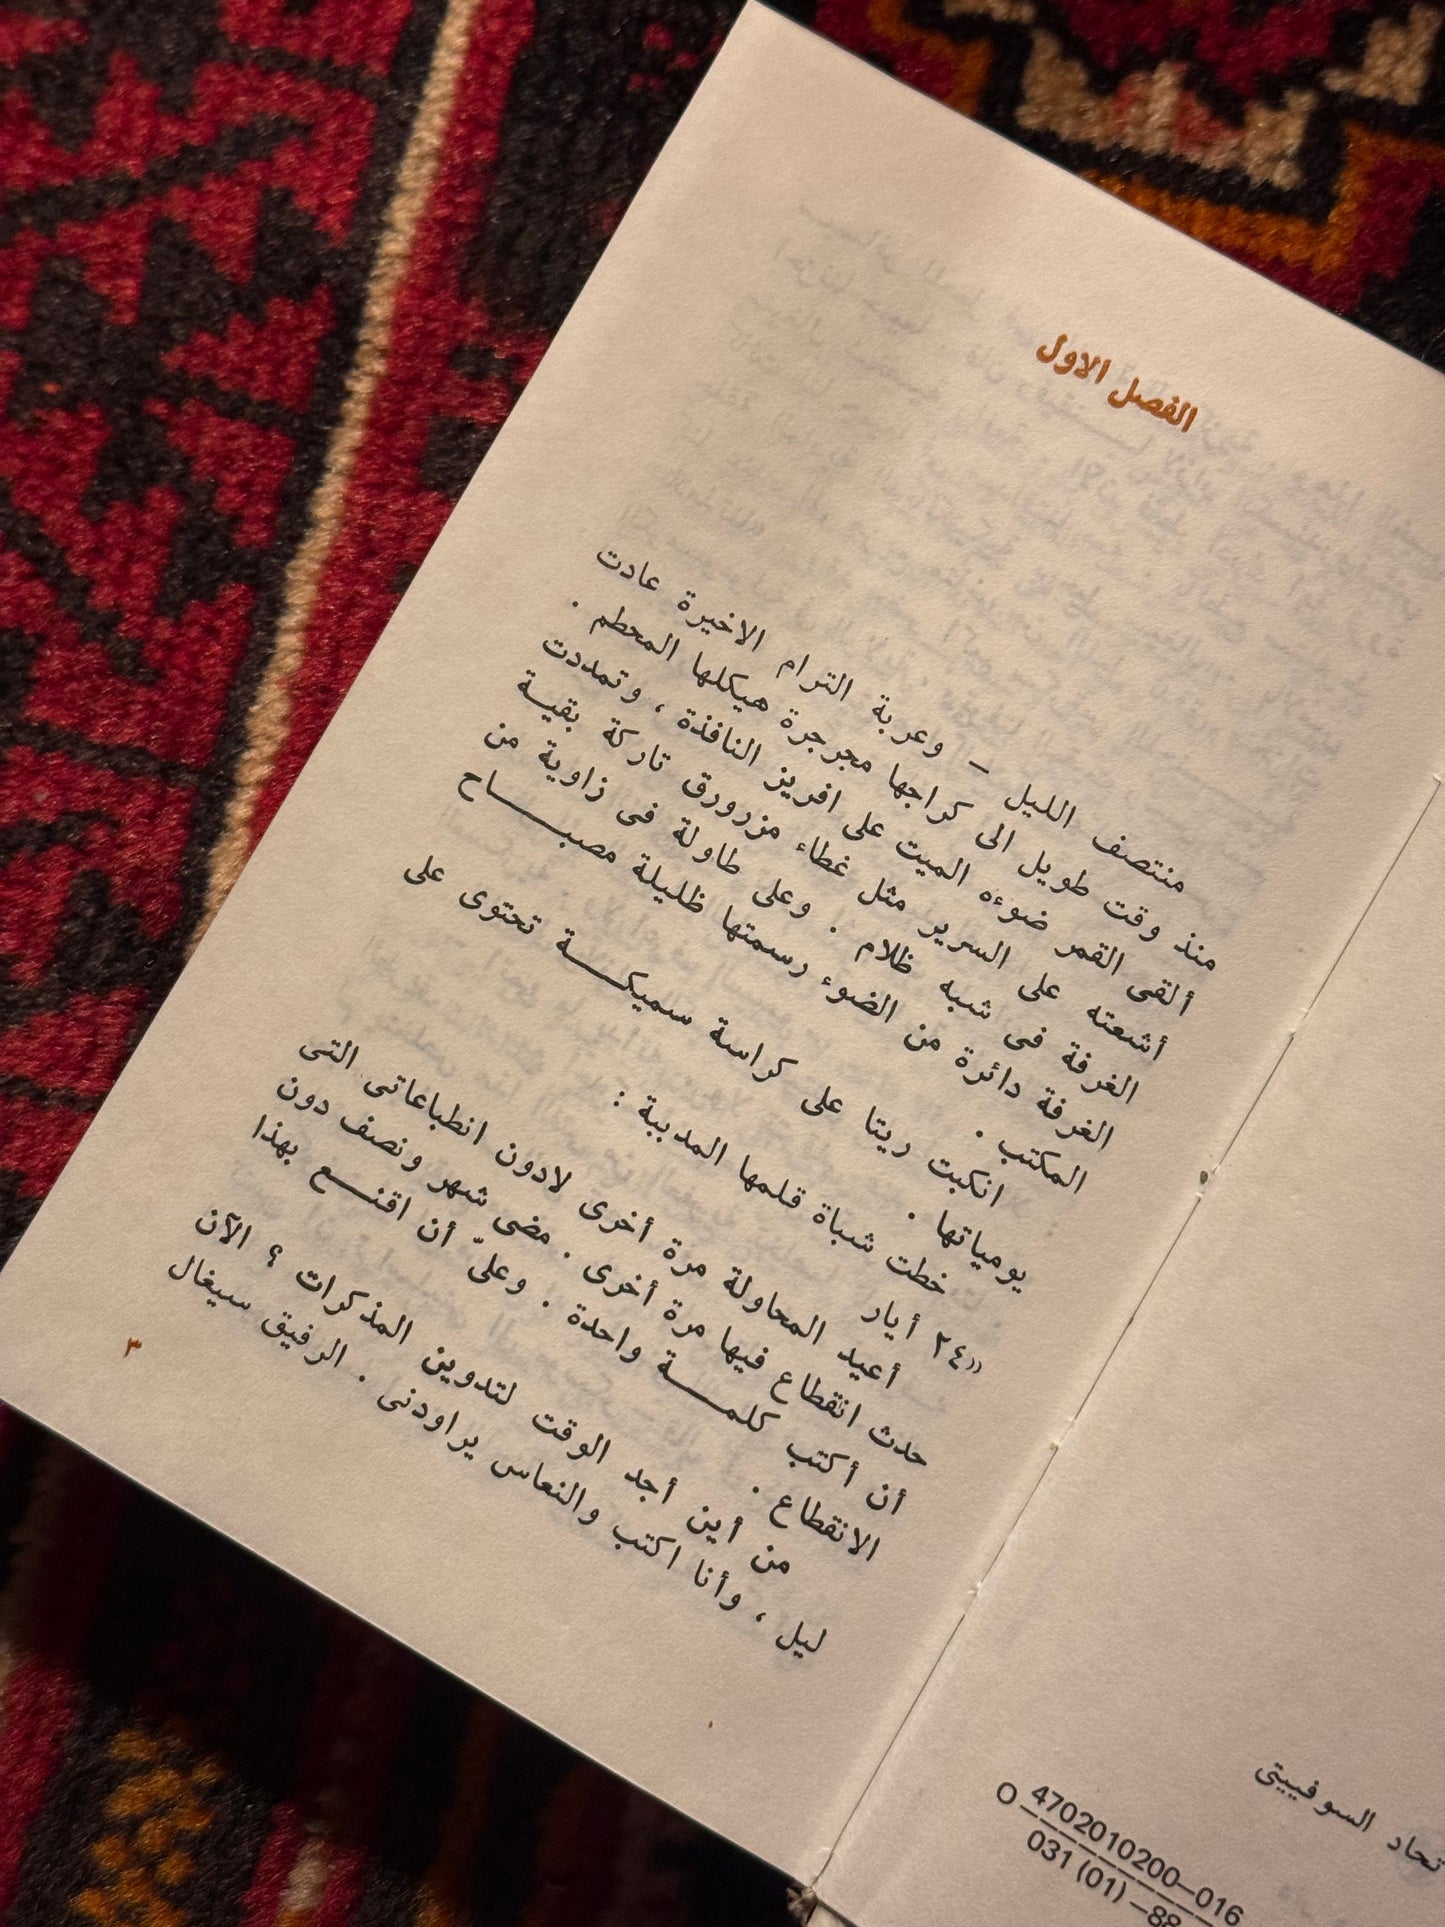 الفصل الاول
منتصف الليل — وعربة الترام الاخيرة عادت
منذ وقت طويل الى كراجها مجرجرة هيكلها المحطم .
ألقى القمر ضوءه الميت على افريز النافذة ، وتمددت
أشعته على السرير مثل غطاء مزرورق تاركة بقية
الغرفة فى شبه ظلام . وعلى طاولة فى زاوية من
الغرفة دائرة من الضوء رسمتها ظليلة مصبــاح
المكتب .
انكبت ريتا على كراسة سميكــة تحتوى على
يومياتها .
خطت شباة قلمها المدببة :
«٢٤ أيار
أعيد المحاولة مرة أخرى لادون انطباعاتى التى
حدث انقطاع فيها مرة أخرى . مضى شهر ونصف دون
أن أكتب كلمــة واحدة . وعلىّ أن اقنــع بهذا
الانقطاع .
من أين أجد الوقت لتدوين المذكرات ؟ الآن
ليل ، وأنا اكتب والنعاس يراودنى . الرفيق سيغال
٣
تحاد السوفييتى
O 4702010200—016
031 (01) —88